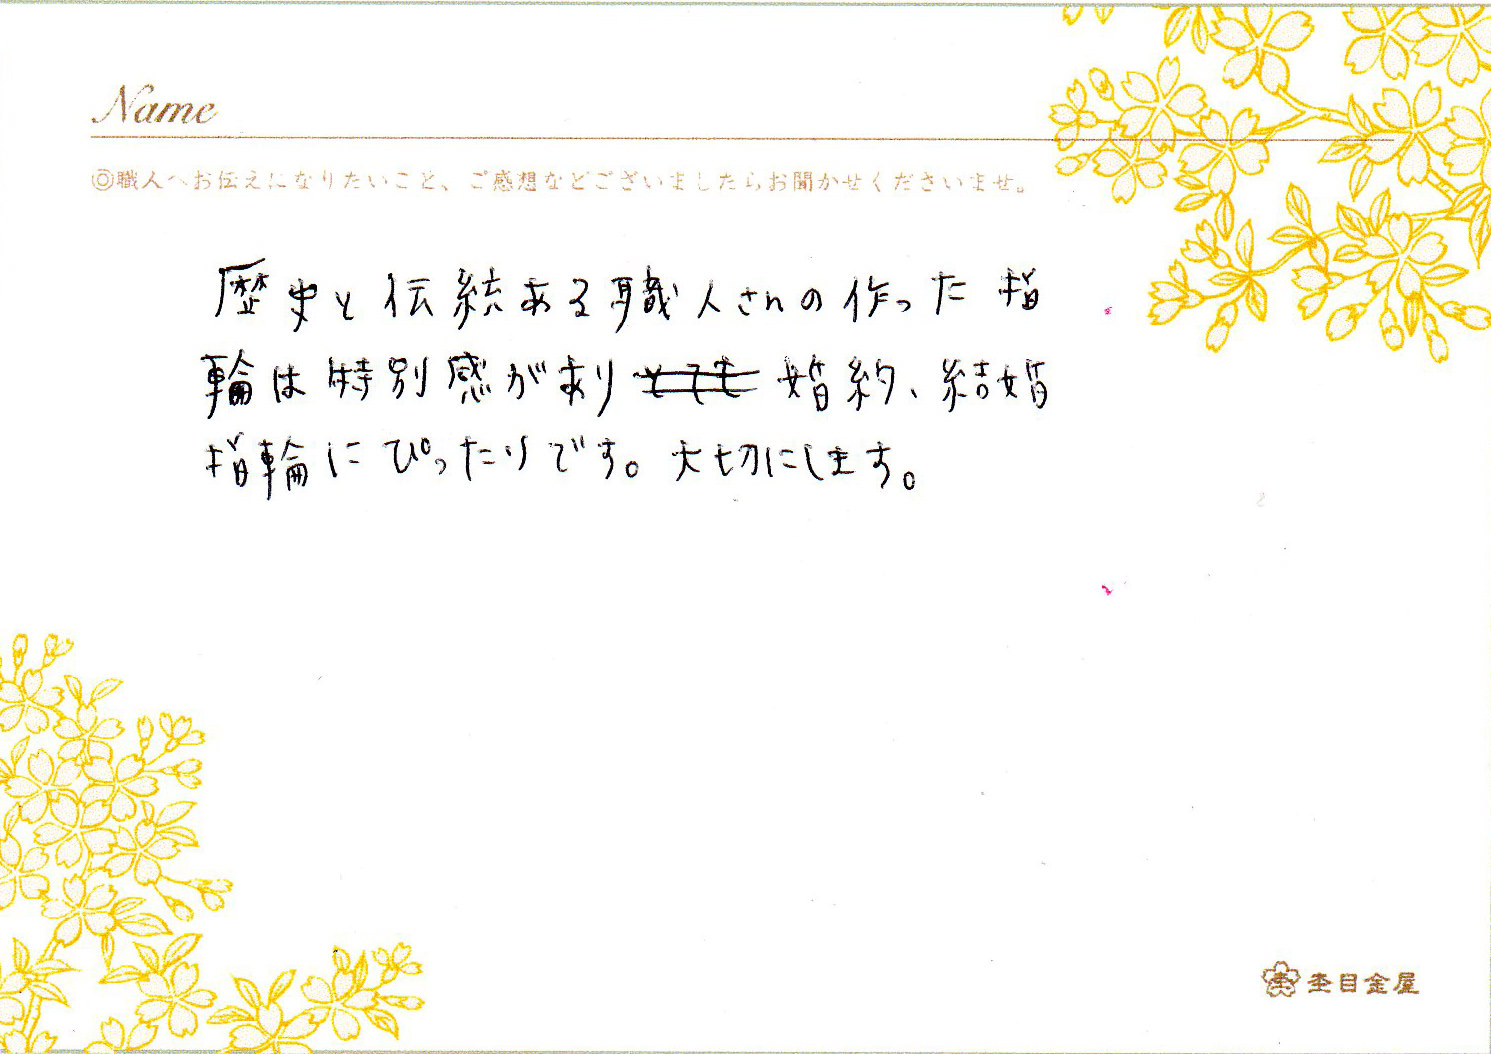 Name
◎職人へお伝えになりたいこと、ご感想などございましたらお聞かせくださいませ。
歴史と伝統ある職人さんの作った指
輪は特別感があり とても 婚約、結婚
指輪にぴったりです。大切にします。
杢目金屋